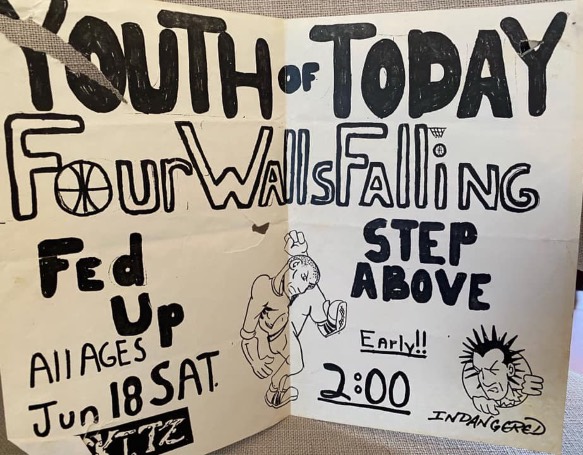 YOUTH OF TODAY
FOUR WALLS FALLING
FED UP
STEP ABOVE
ALL AGES
Jun 18 SAT.
Early!!
2:00
INDANGERED